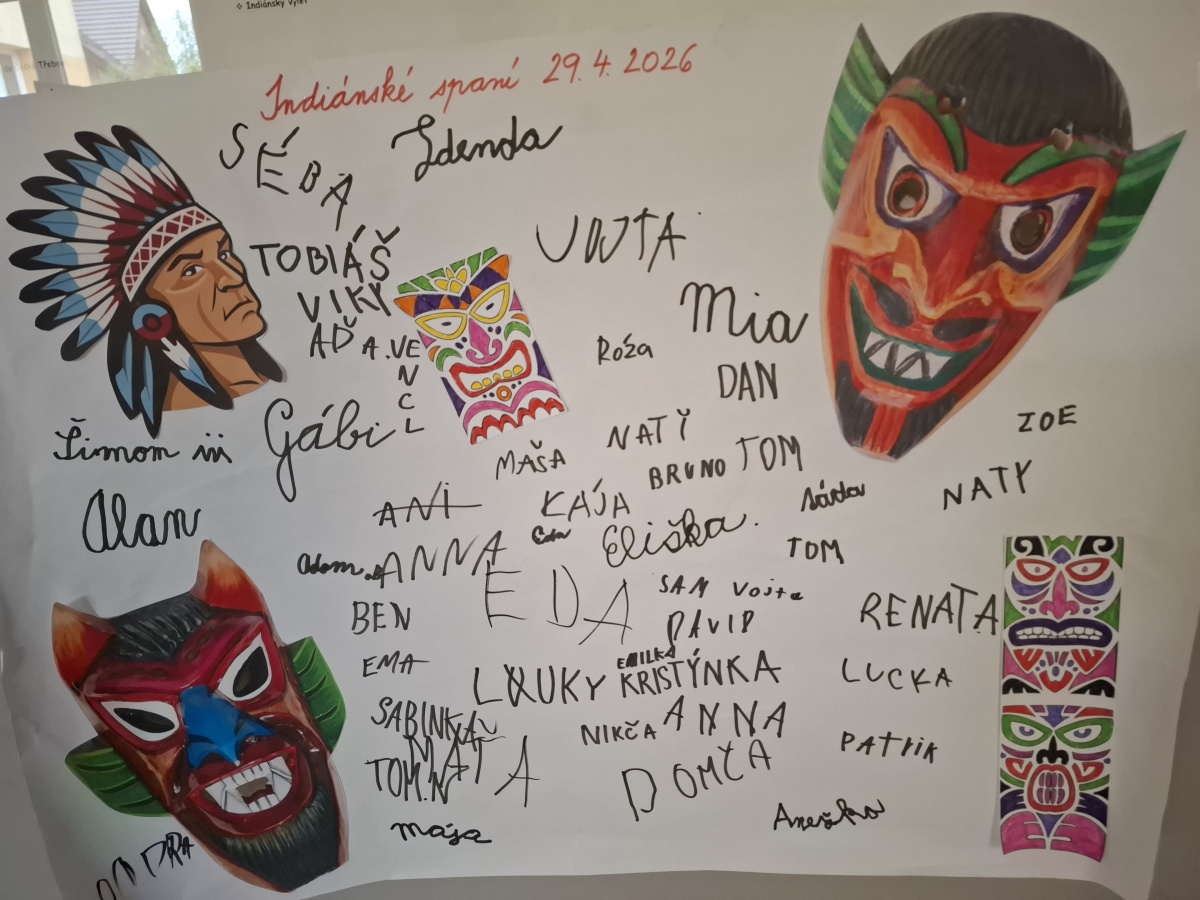 ❖ Indiánský výlet
Třebov
Indiánské spaní 29.4.2026
SÉBA
Zdenda
VOJTA
TOBIÁŠ
VIKY
AĎA.VENCL
Mia
Róza
DAN
ZOE
Gábi
Šimon iii
NATÝ
MAŠA
BRUNO TOM
NATY
Alan
ANI
KÁJA
Eda
Eliška.
TOM
Adam
ANNA
EDA
SAM Vojta
BEN
DAVID
RENATA
EMILKA
EMA
LUKY KRISTÝNKA
LUCKA
SABINKA
NIKČA ANNA
PATRIK
TOM.N
MÁŤA
DOMČA
Mája
Anežka